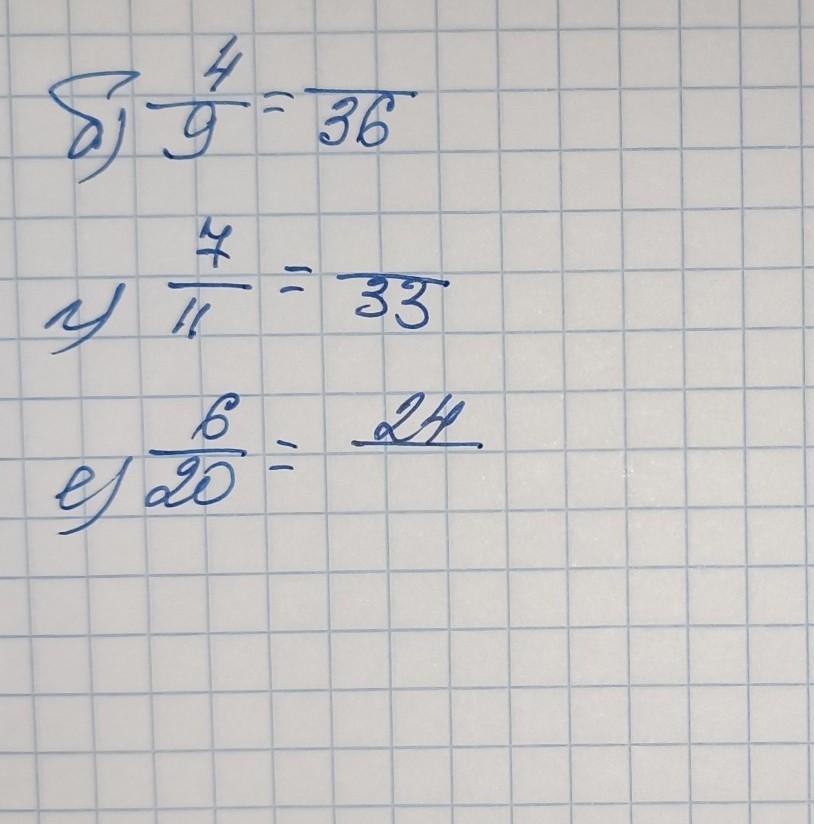 б) 4/9 = /36
г) 7/11 = /33
е) 6/20 = 24/